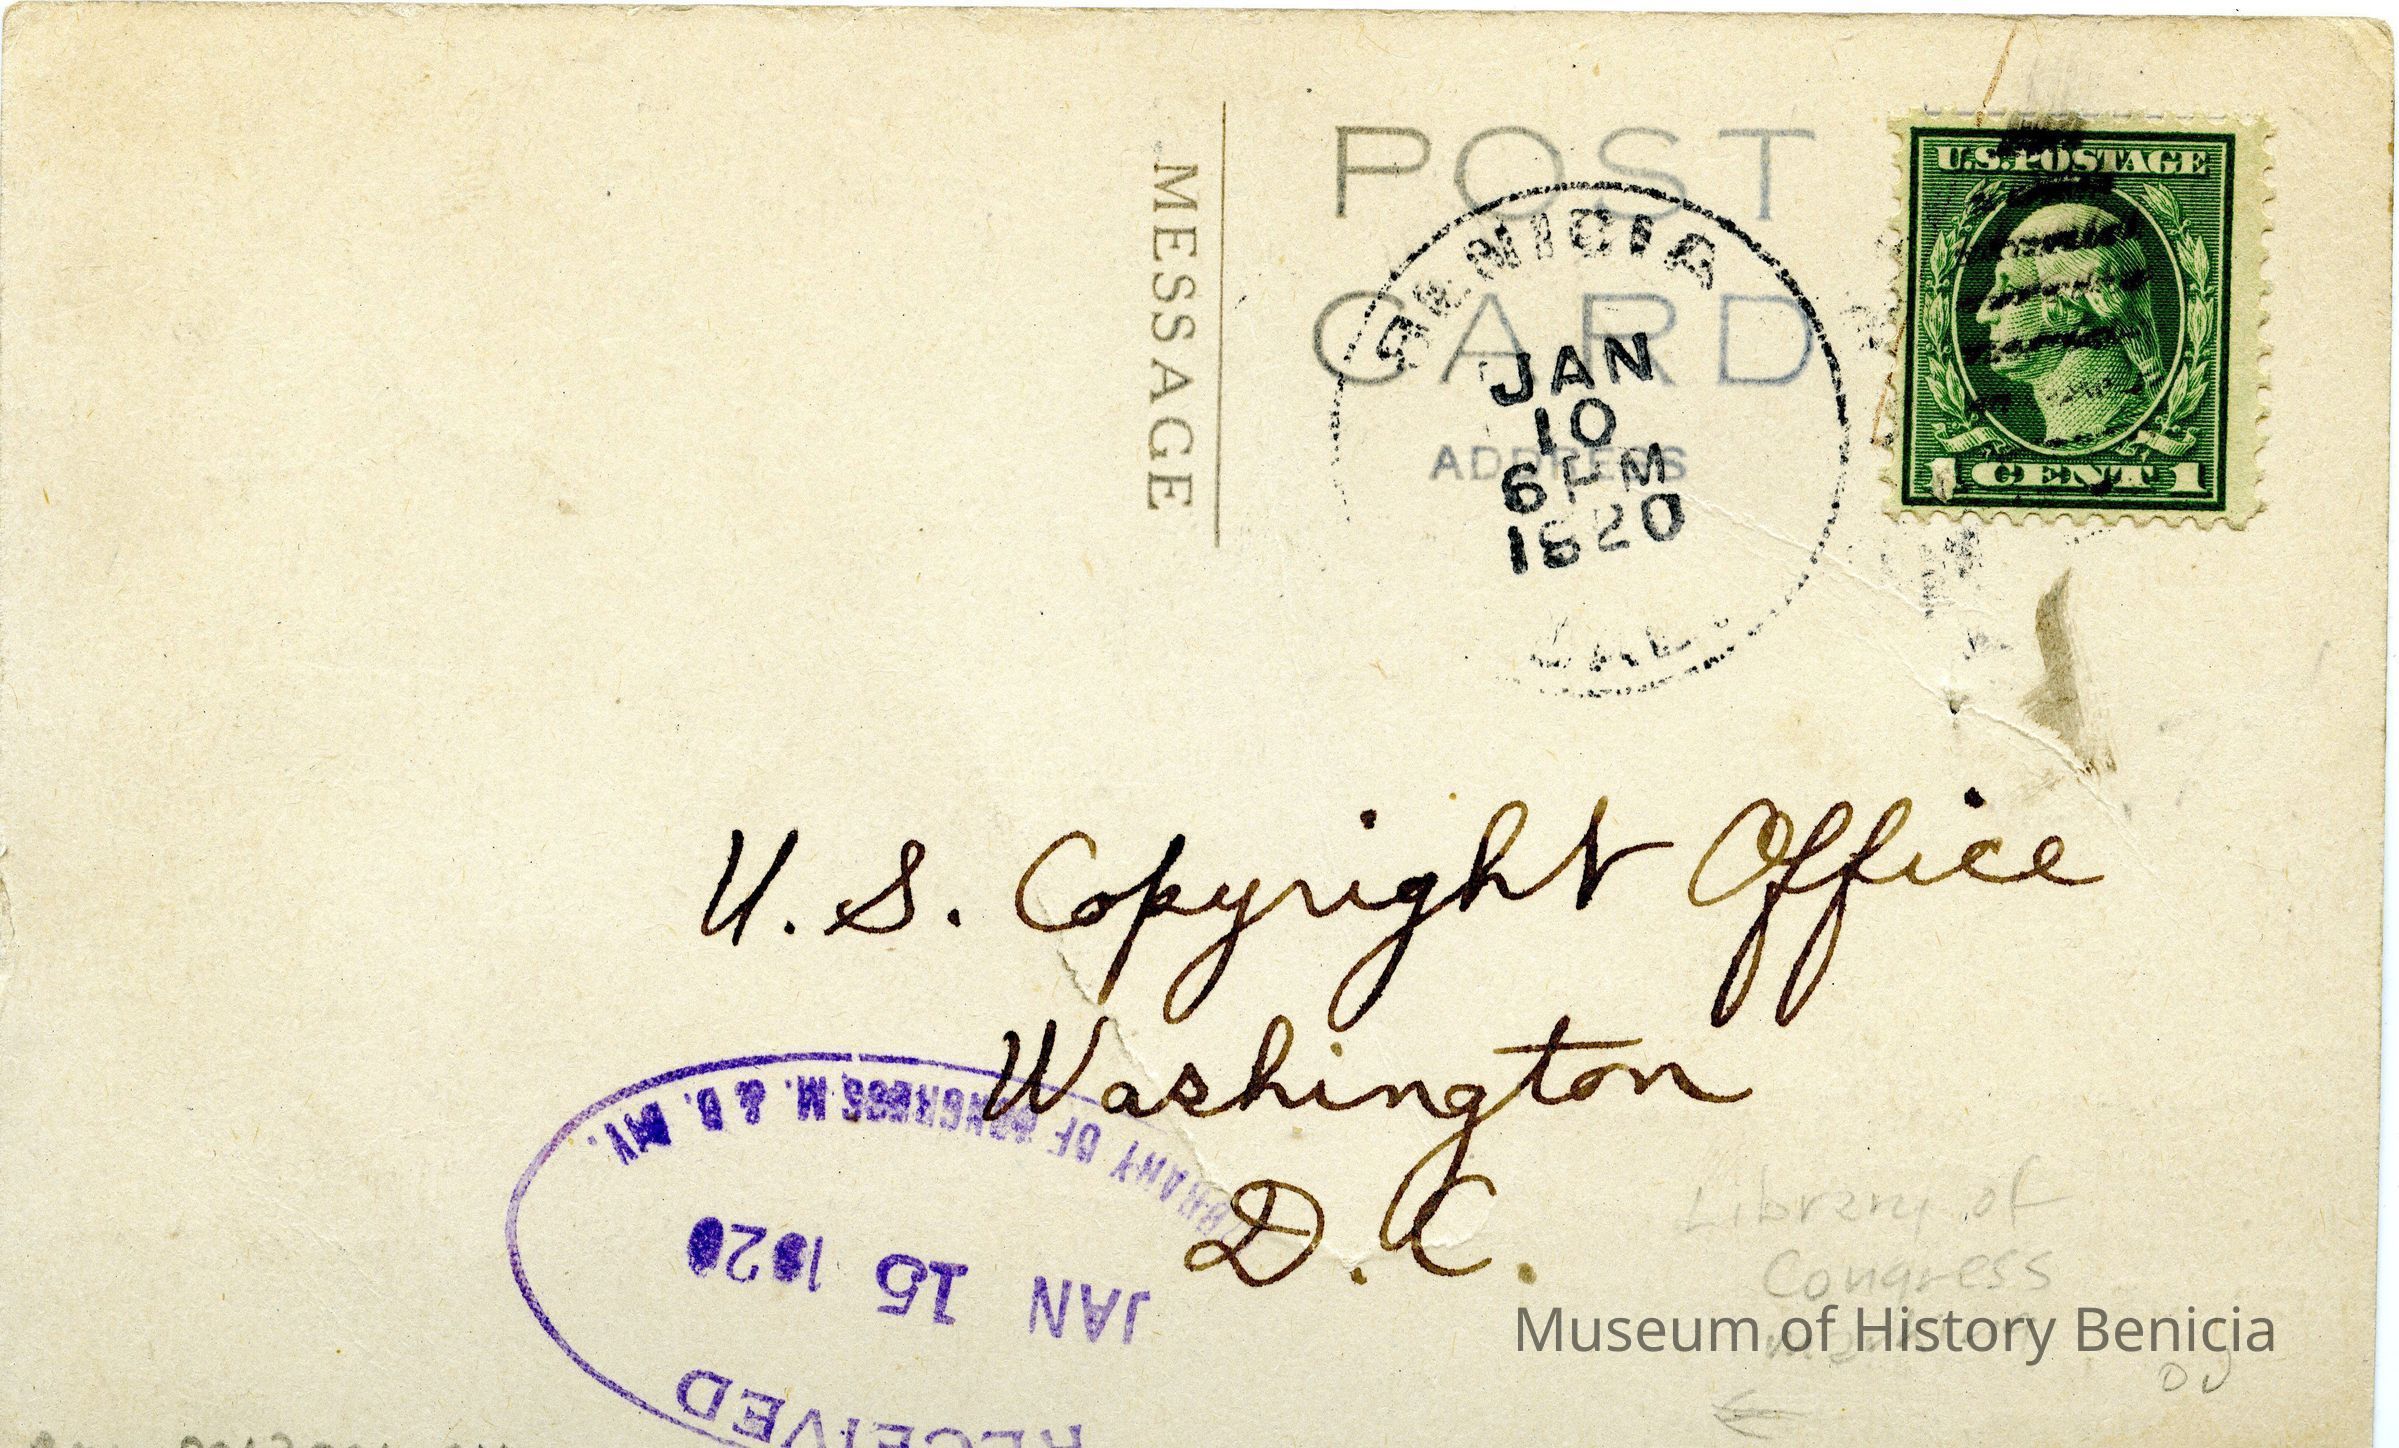 POST
CARD
ADDRESS
MESSAGE
BENICIA
JAN
10
6 PM
1920
U.S.POSTAGE
1 CENT 1
U. S. Copyright Office
Washington
D. C.
LIBRARY OF CONGRESS, M. & D.
JAN 15 1920
RECEIVED
Library of
Congress
Museum of History Benicia